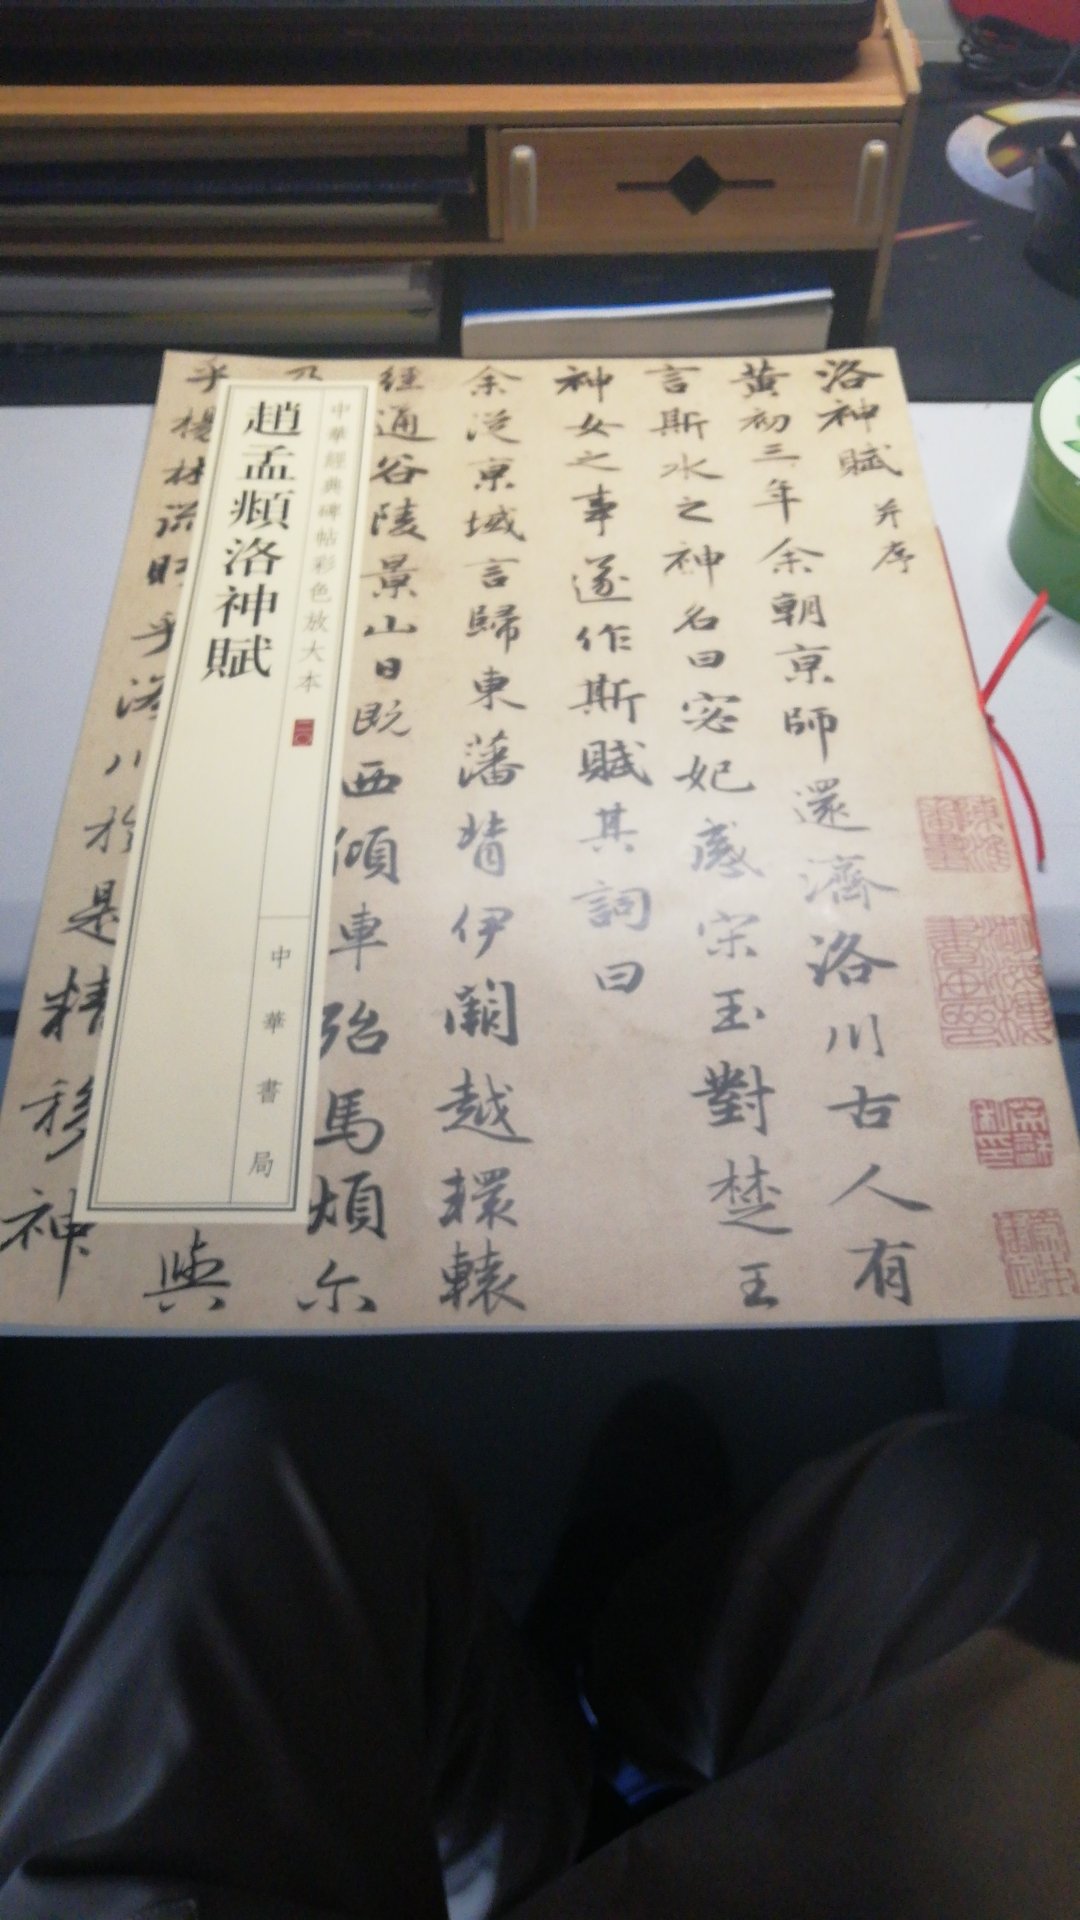 洛神賦并序
黄初三年余朝京師還濟洛川古人有
言斯水之神名曰宓妃感宋玉對楚王
神女之事遂作斯賦其詞曰
余從京域言歸東藩背伊闕越轘轅
經通谷陵景山日既西傾車殆馬煩尒
乃
與
乎楊林流眄乎洛川於是精移神
中華經典碑帖彩色放大本
趙孟頫洛神賦
中華書局